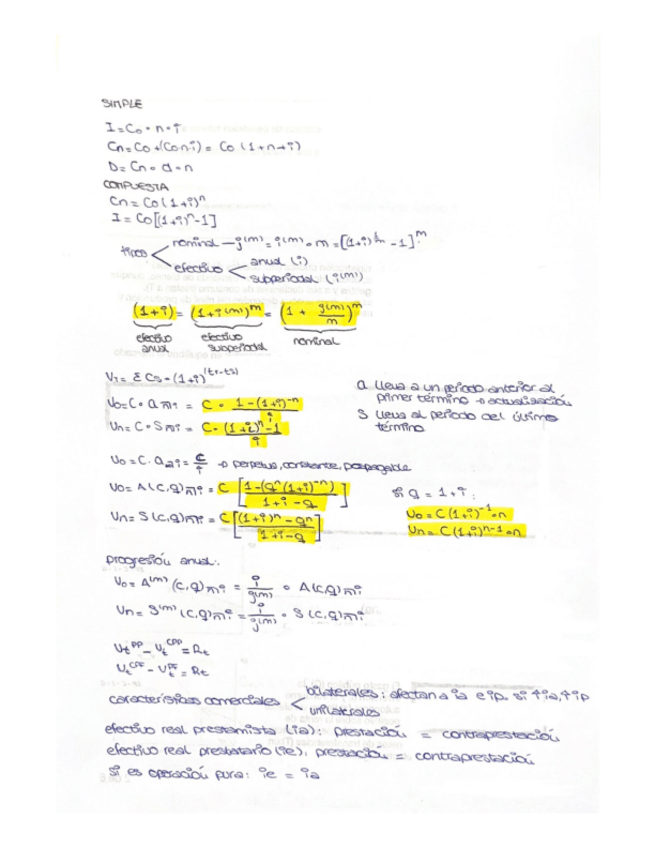 SIMPLE
I = Co · n · i
Cn = Co + (Co·n·i) = Co (1 + n · i)
D = Cn · d · n
COMPUESTA
Cn = Co (1+i)^n
I = Co[(1+i)^n - 1]
tipos
nominal — j(m) = i(m) · m = [(1+i)^1/m - 1]·m
efectivo
anual (i)
subperiodal (i(m))
(1+i) = (1+i(m))^m = (1 + j(m)/m)^m
efectivo anual
efectivo subperiodal
nominal
V_T = Σ Cs · (1+i)^(t-ts)
Vo = C · a n¬i = C · 1-(1+i)^-n / i
Vn = C · S n¬i = C · (1+i)^n - 1 / i
a lleva a un periodo anterior al
primer término → actualización
S lleva al periodo del último
término
Vo = C · a ∞¬i = C/i → perpetua, constante, pospagable
Vo = A(C,q) n¬i = C [1-(q^n(1+i)^-n) / 1+i-q]
Vn = S(C,q) n¬i = C [(1+i)^n - q^n / 1+i-q]
si q = 1+i :
Vo = C (1+i)^-1 · n
Vn = C (1+i)^n-1 · n
progresión anual:
Vo = A^(m) (C,q) n¬i = i/j(m) · A(C,q) n¬i
Vn = S^(m) (C,q) n¬i = i/j(m) · S(C,q) n¬i
Ut^PP - Ut^CPP = Rt
Ut^CPF - Ut^PF = Rt
características comerciales
bilaterales: afectan a ia e ip. si ↑ia, ↑ip
unilaterales
efectivo real prestamista (ia): prestación = contraprestación
efectivo real prestatario (ie): prestación = contraprestación
si es operación pura: ie = ia